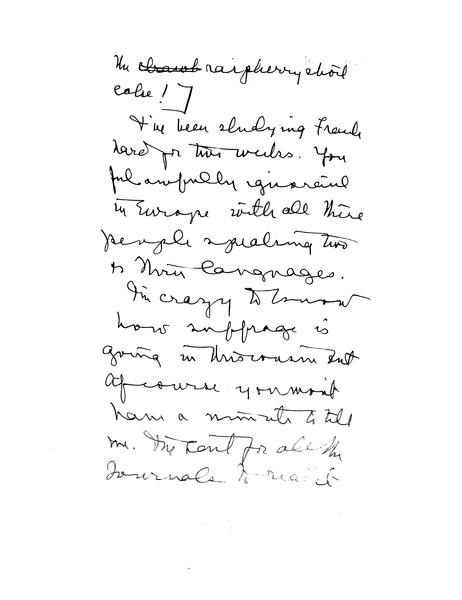 the straub raspberry short
cake!]
I've been studying French
hard for two weeks. You
feel awfully ignorant
in Europe with all these
people speaking two
or three languages.
I'm crazy to know
how suffrage is
going in Wisconsin but
of course you won't
have a minute to tell
me. I've sent for all the
Journals to read it